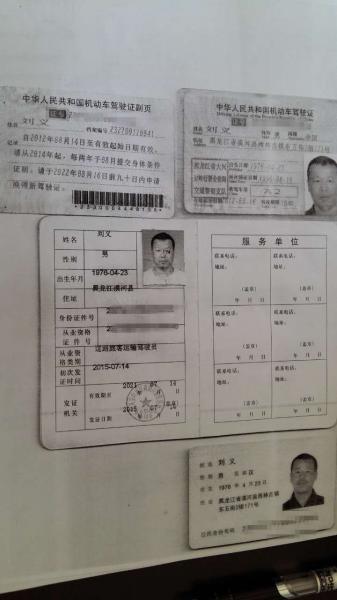 中华人民共和国机动车驾驶证副页
证号
姓名 刘义
档案编号 232700110941
自2012年08月16日至有效起始日期有效。
记录
请从2014年起，每两年于08月提交身体条件
证明，请于2022年08月16日前九十日内申请
换领新驾驶证。
中华人民共和国机动车驾驶证
证号
姓名 刘义
国籍 中国
姓名 刘义
性别 男
出生年月 1976-04-23
住址 黑龙江漠河县
身份证件号 2
从业资格证件号 2
从业资格类别 道路旅客运输驾驶员
初次发证时间 2015-07-14
有效期至 2021 年 07 月 14 日
发证机关 (盖章)
发证日期 2015 年 07 月 日
服务单位
联系电话：
联系电话：
地址：
地址：
(盖章)
(盖章)
年 月 日
年 月 日
联系电话：
联系电话：
地址：
地址：
(盖章)
(盖章)
年 月 日
年 月 日
联系电话：
联系电话：
地址：
地址：
(盖章)
(盖章)
年 月 日
年 月 日
姓名 刘义
性别 男 民族 汉
出生 1976 年 4 月 23 日
住址 黑龙江省漠河县西林吉镇
公民身份号码